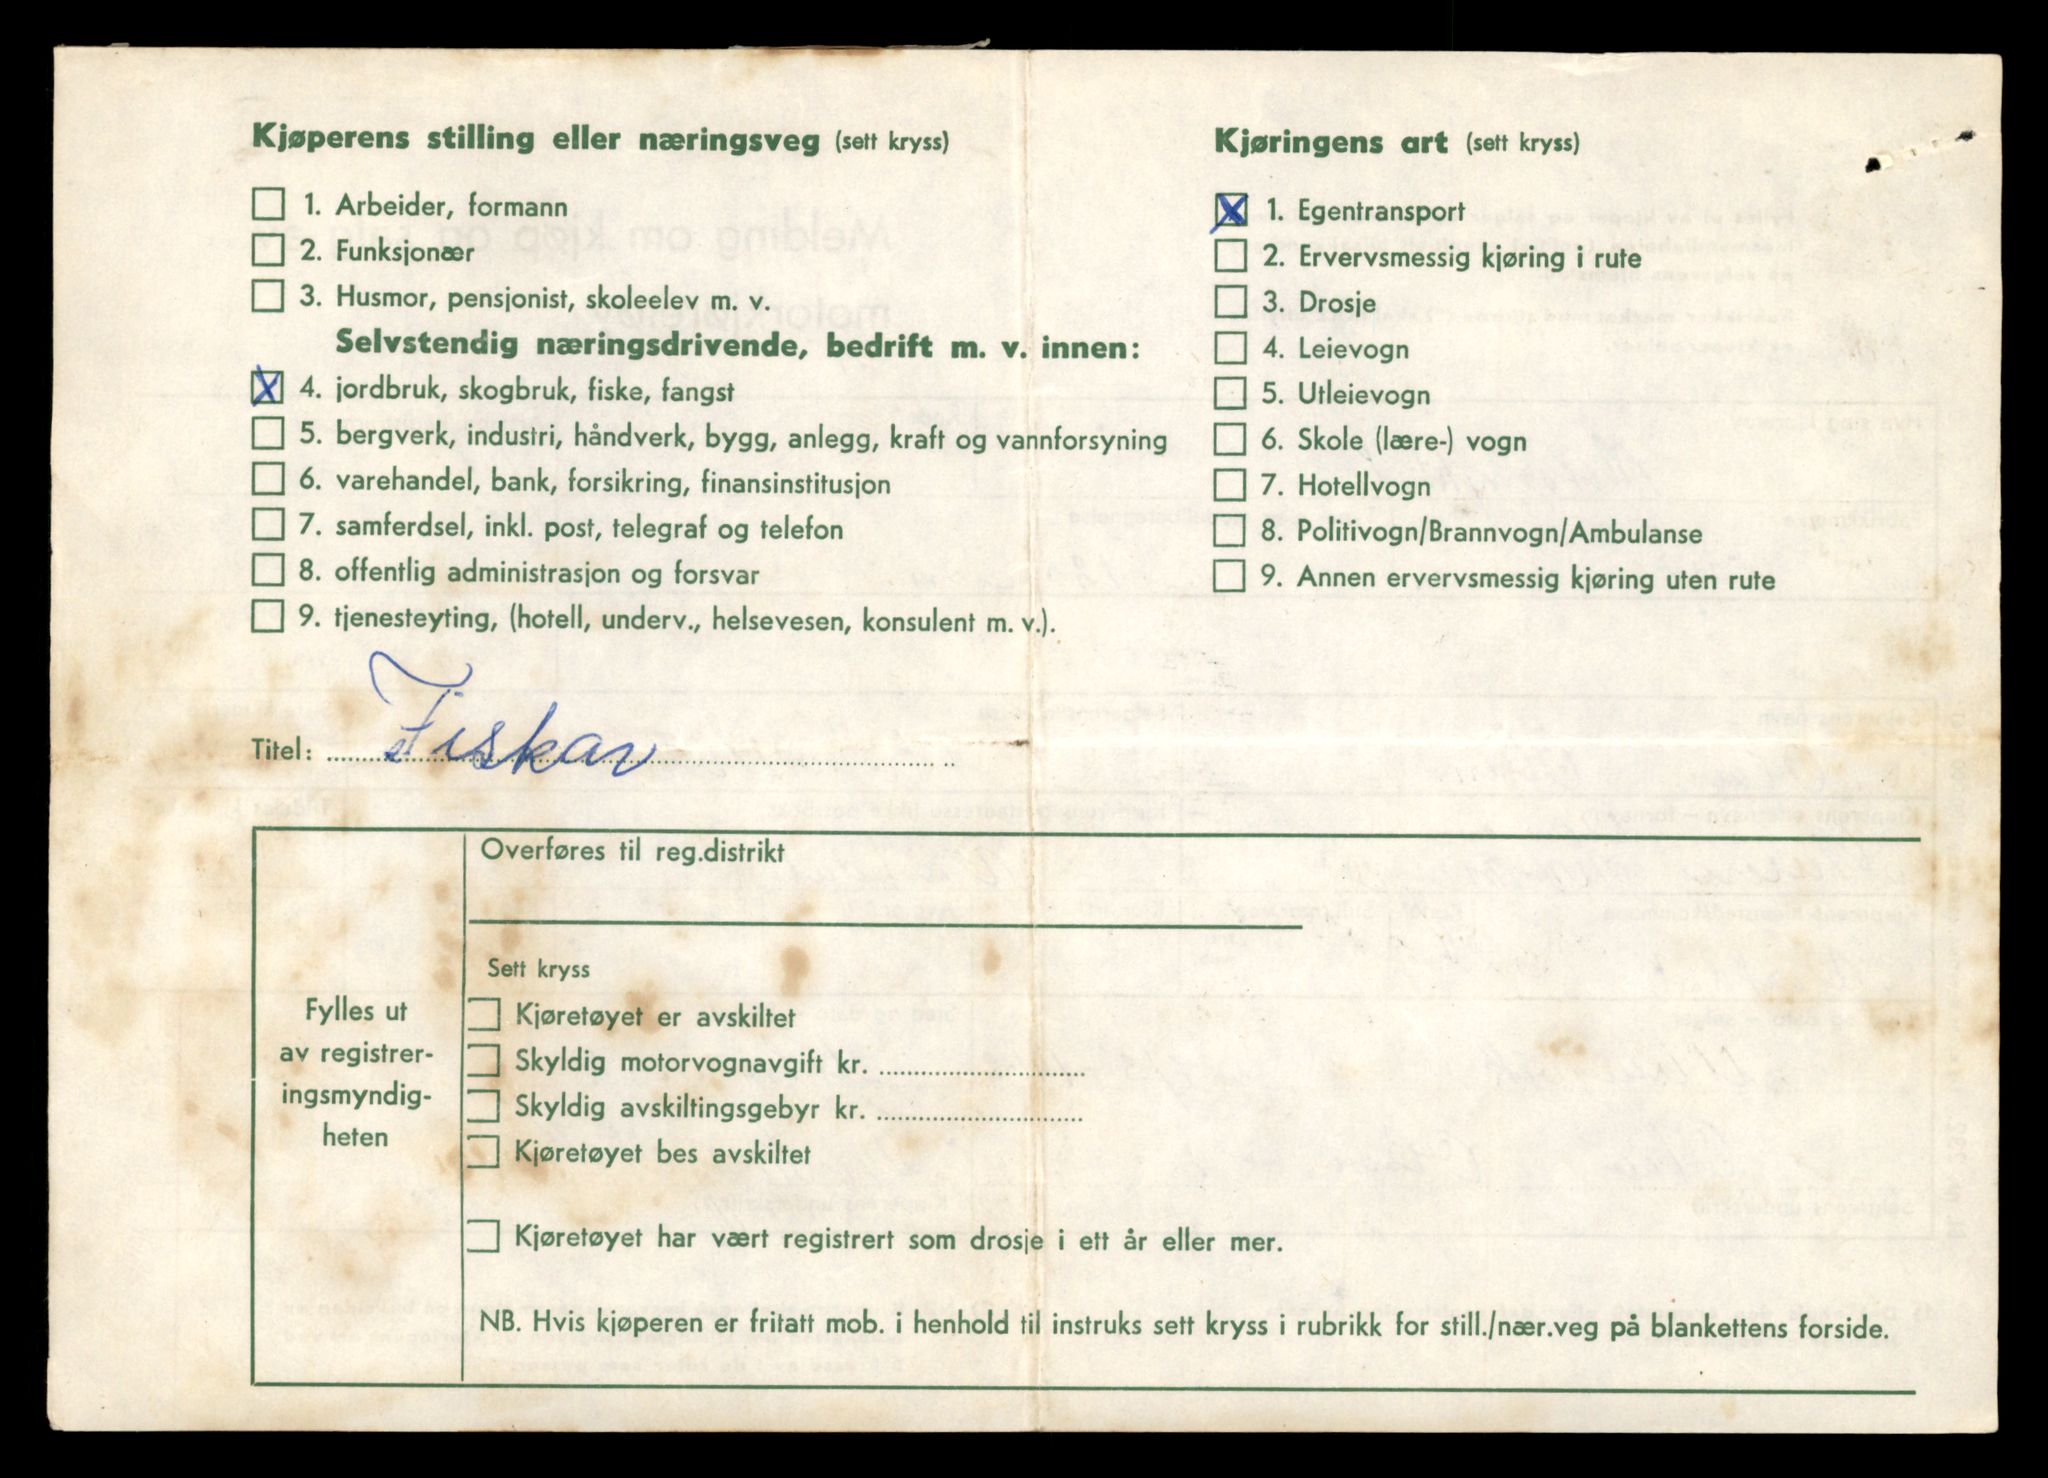 Kjøperens stilling eller næringsveg (sett kryss)
1. Arbeider, formann
2. Funksjonær
3. Husmor, pensjonist, skoleelev m. v.
Selvstendig næringsdrivende, bedrift m. v. innen:
4. jordbruk, skogbruk, fiske, fangst
5. bergverk, industri, håndverk, bygg, anlegg, kraft og vannforsyning
6. varehandel, bank, forsikring, finansinstitusjon
7. samferdsel, inkl. post, telegraf og telefon
8. offentlig administrasjon og forsvar
9. tjenesteyting, (hotell, underv., helsevesen, konsulent m. v.).
Titel: Fiskar
Kjøringens art (sett kryss)
1. Egentransport
2. Ervervsmessig kjøring i rute
3. Drosje
4. Leievogn
5. Utleievogn
6. Skole (lære-) vogn
7. Hotellvogn
8. Politivogn/Brannvogn/Ambulanse
9. Annen ervervsmessig kjøring uten rute
Fylles ut
av registrer-
ingsmyndig-
heten
Overføres til reg.distrikt
Sett kryss
Kjøretøyet er avskiltet
Skyldig motorvognavgift kr.
Skyldig avskiltingsgebyr kr.
Kjøretøyet bes avskiltet
Kjøretøyet har vært registrert som drosje i ett år eller mer.
NB. Hvis kjøperen er fritatt mob. i henhold til instruks sett kryss i rubrikk for still./nær.veg på blankettens forside.